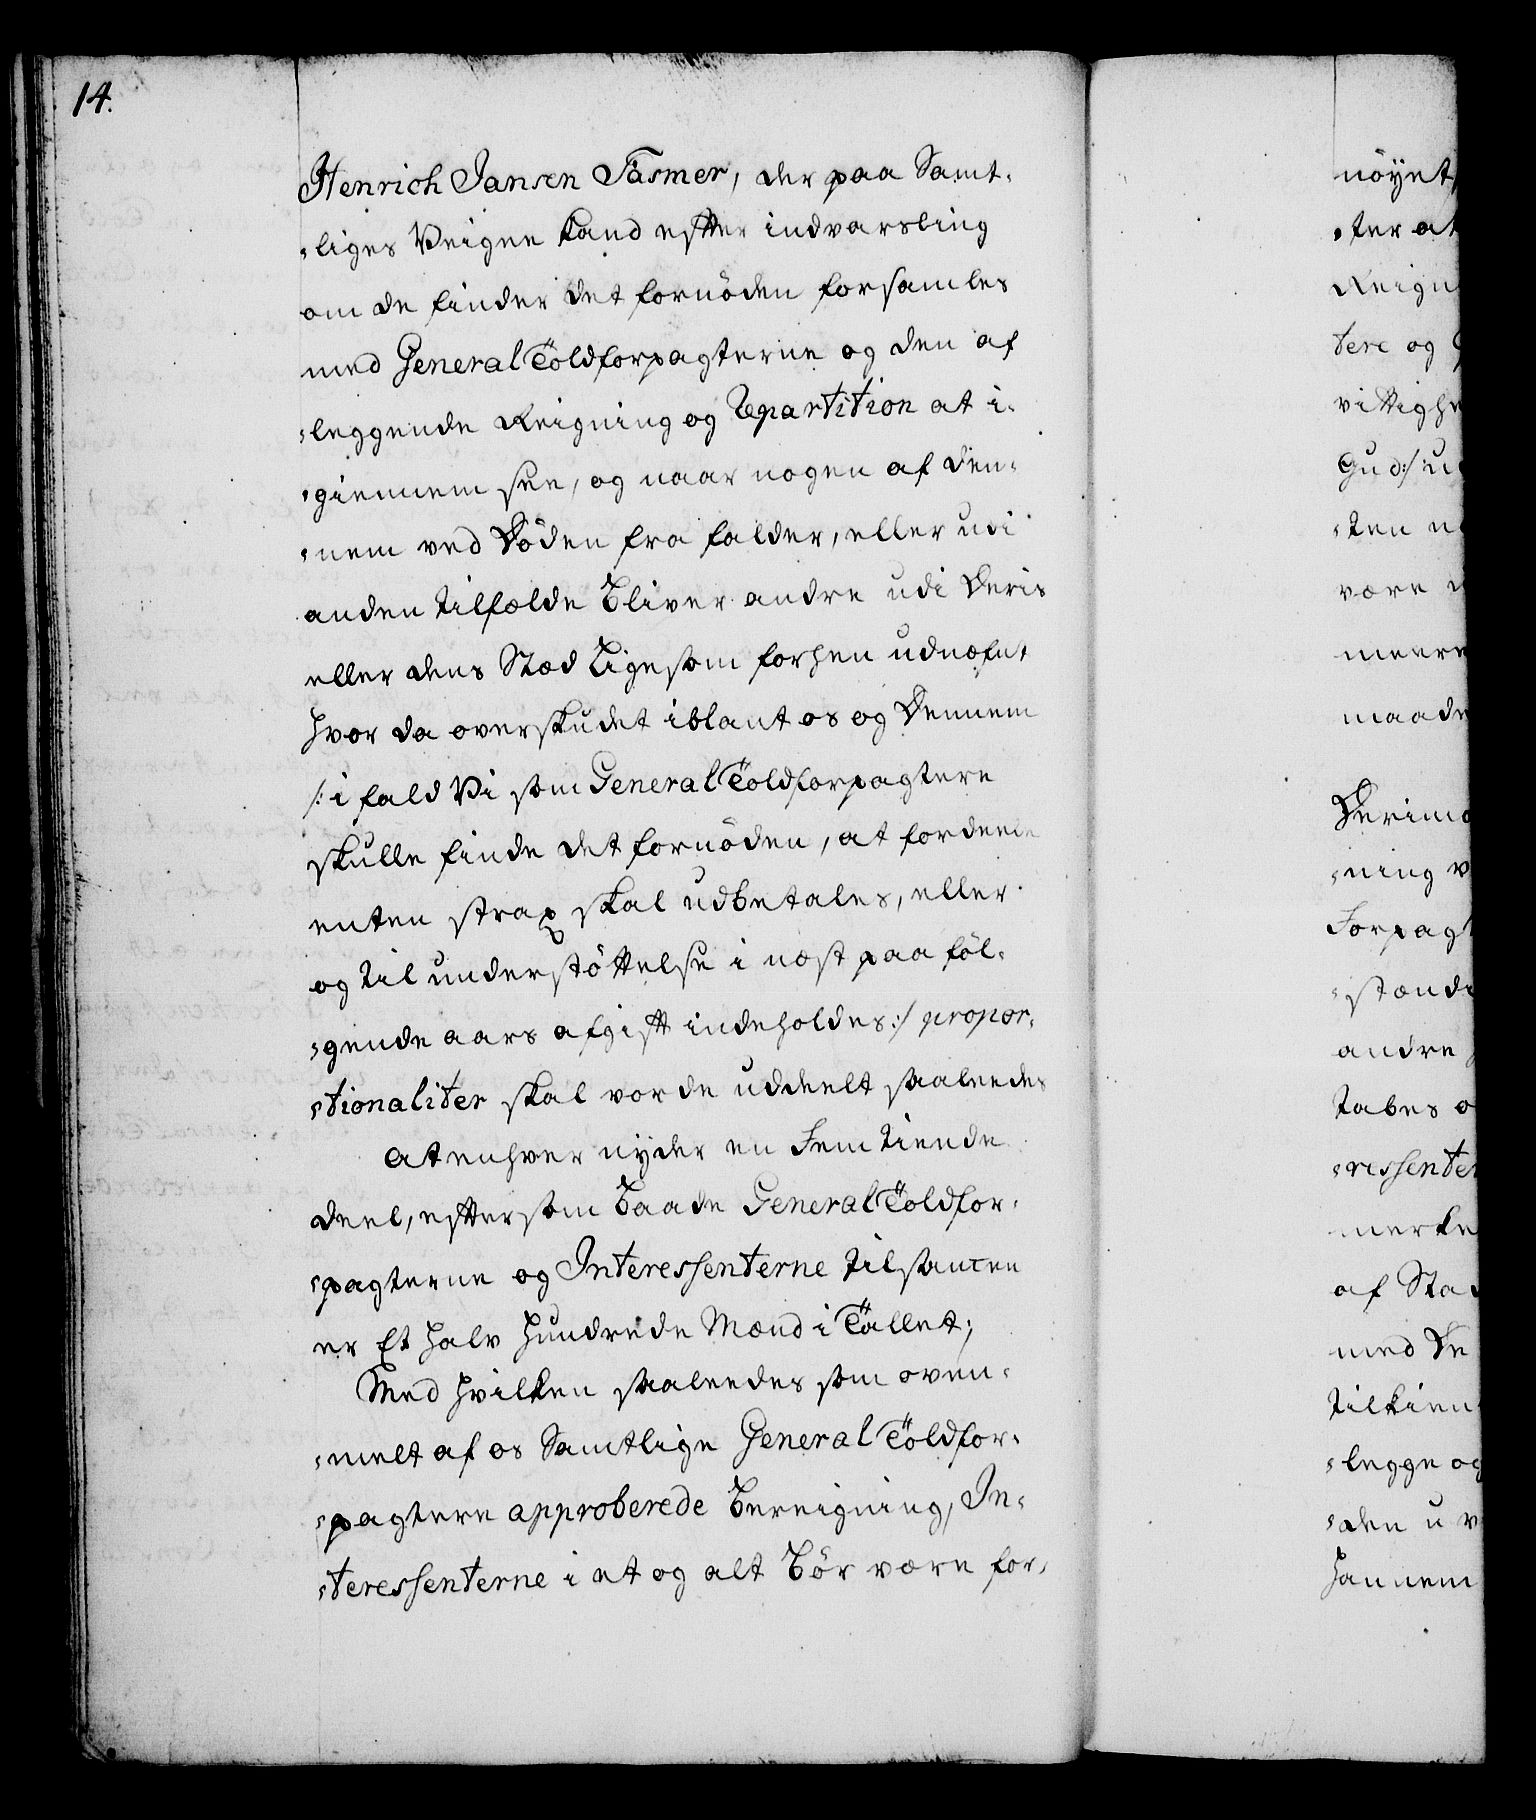 14.
Henrich Jansen Fasmer, der paa Samt-
-liges Veigne kand efter indvarsling
om de finder det fornöden forsamles
med General Toldforpagterne og den af
-leggende Reigning og Repartition at i-
-giennem see, og naar nogen af den-
-nem ved Döden fra falder, eller udi
anden tilfælde bliver andre udi Deris
eller dens Stæd ligesom forhen udnæfnt
hvor da overskudet iblant os og Dennem
/: i fald Vi som General Toldforpagtere
skulle finde det fornöden, at fordeele
enten strax skal udbetales, eller
og til understöttelse i næst paa föl-
-gende aars afgift indeholdes :/ propor-
-tionaliter skal vorde uddeelt saaleedes
At enhver nyder en Femtiende
deel, eftersom baade General Toldfor-
-pagterne og Interessenterne tilsamen
er Et halv hundrede Mænd i Tallet;
Med hvilken saaleedes som oven-
-melt af os Samtlige General Toldfor-
-pagtere approberede bereigning, In-
-teressenterne i et og alt bör være for-
nöyet
-ter at
Reign
tere og
vittighe
Gud :/: u
-ten
være
meere
maade
Derimo
-ning v
Forpagt
-stændi
andre
tabes o
-ressenter
merke
af Sta
med De
tilkien
-legge og
-den u v
hannem